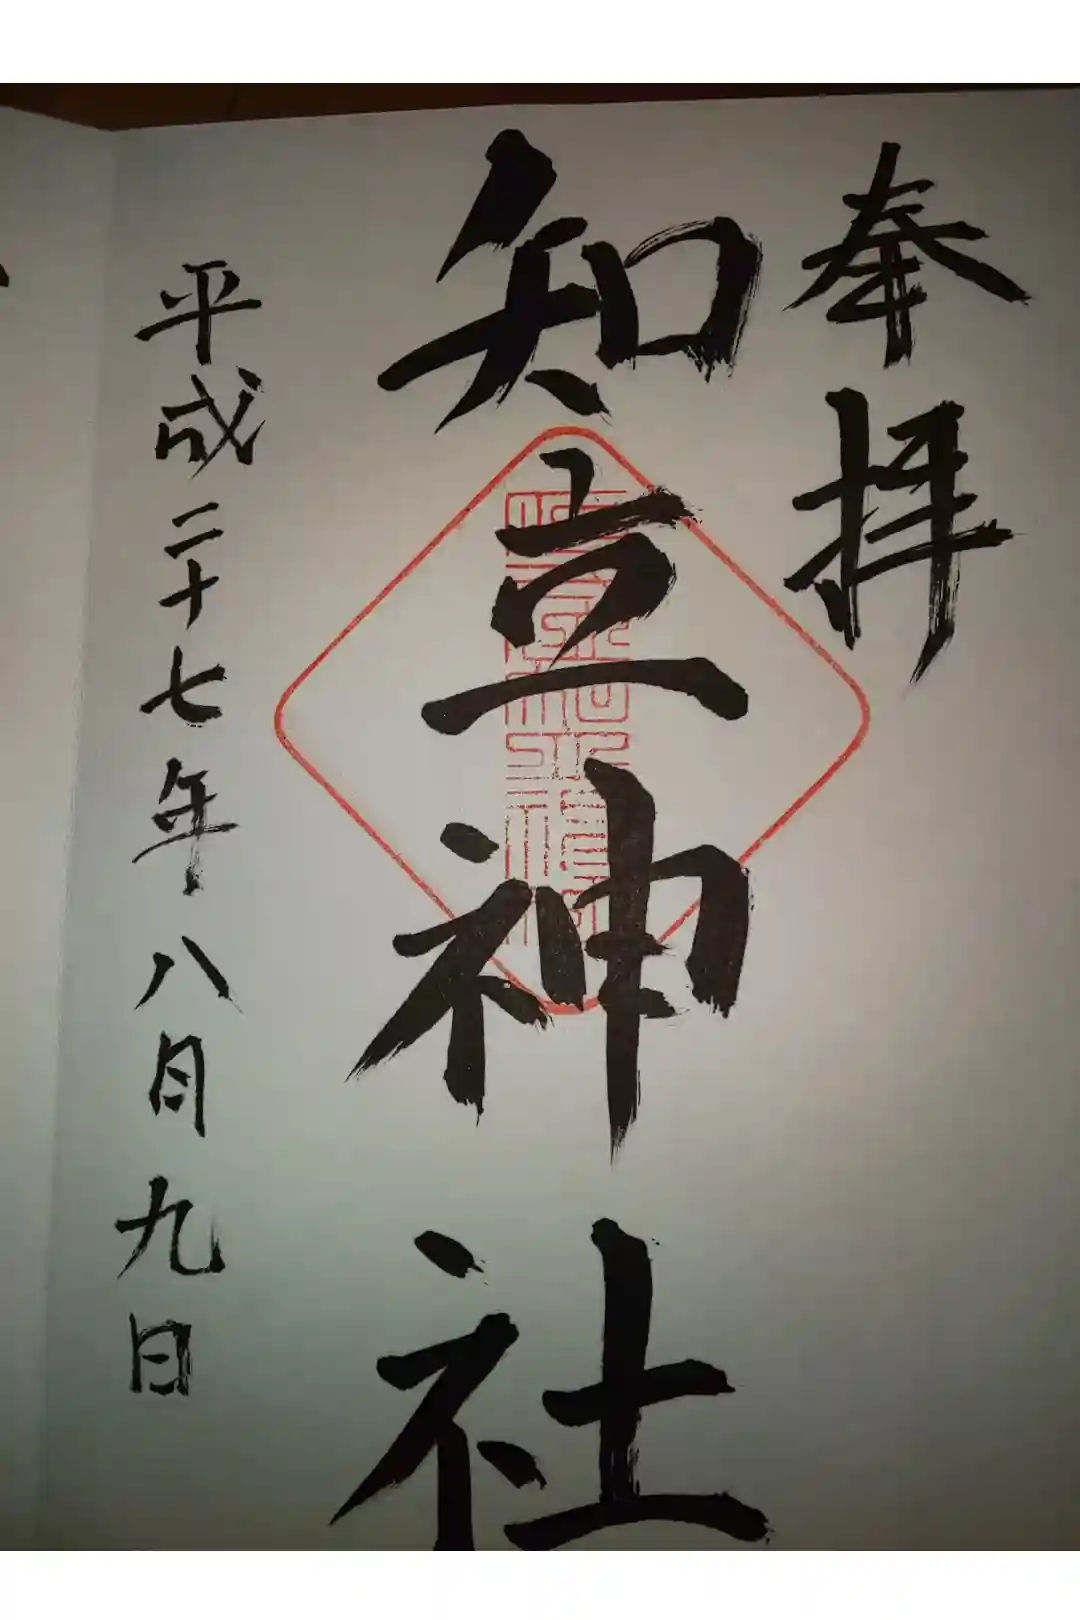 奉拝
知立神社
平成二十七年八月九日